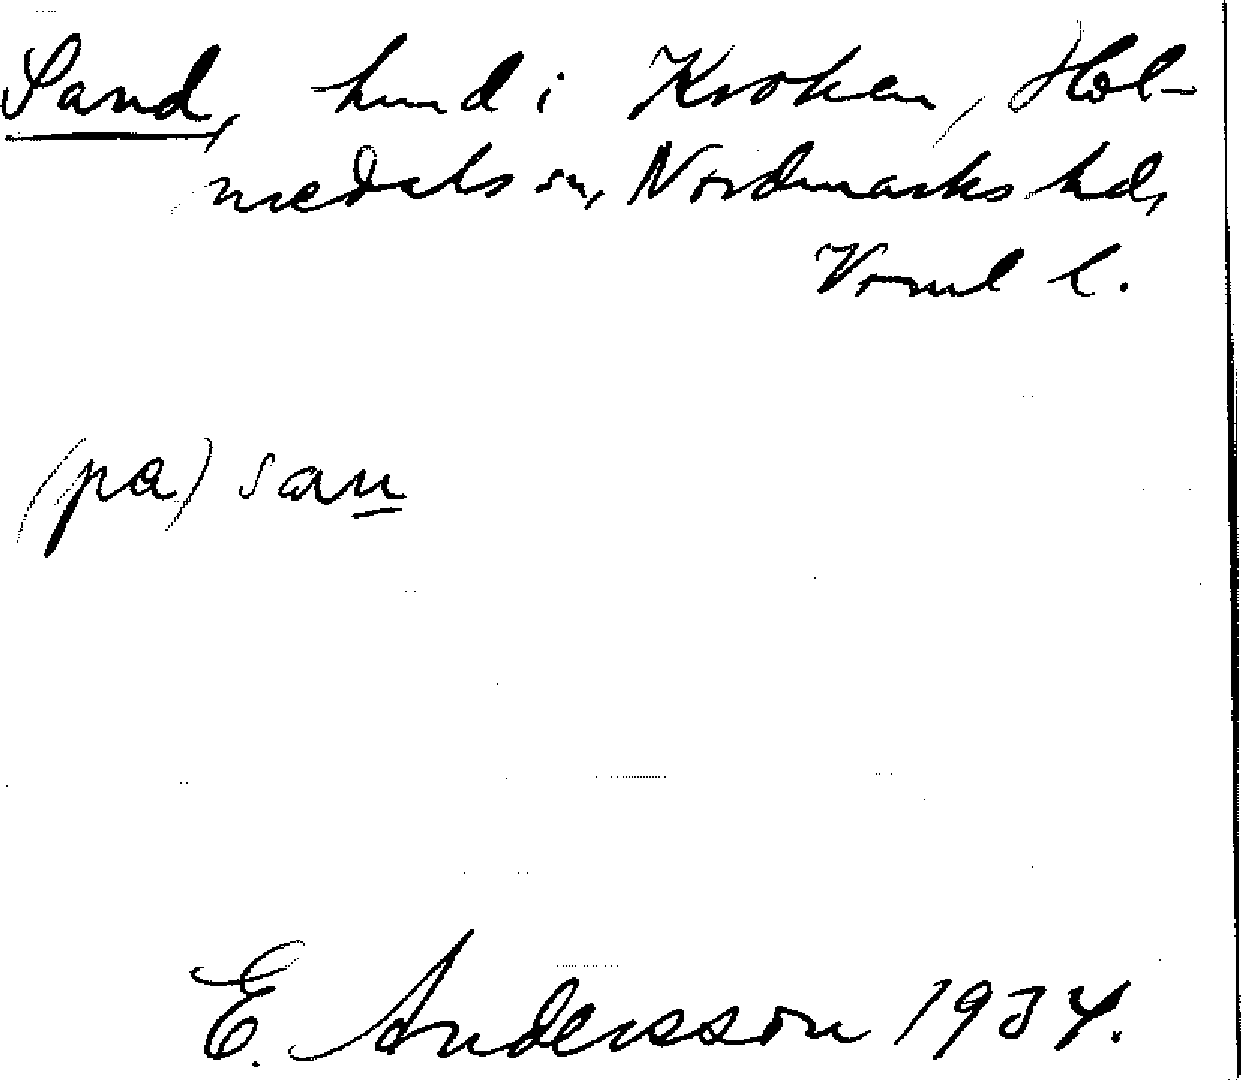 Sand, hmd i Kroken, Hol-
medals sn, Nordmarks hd,
Vrml l.
(pa) san
E. Andersson 1934.